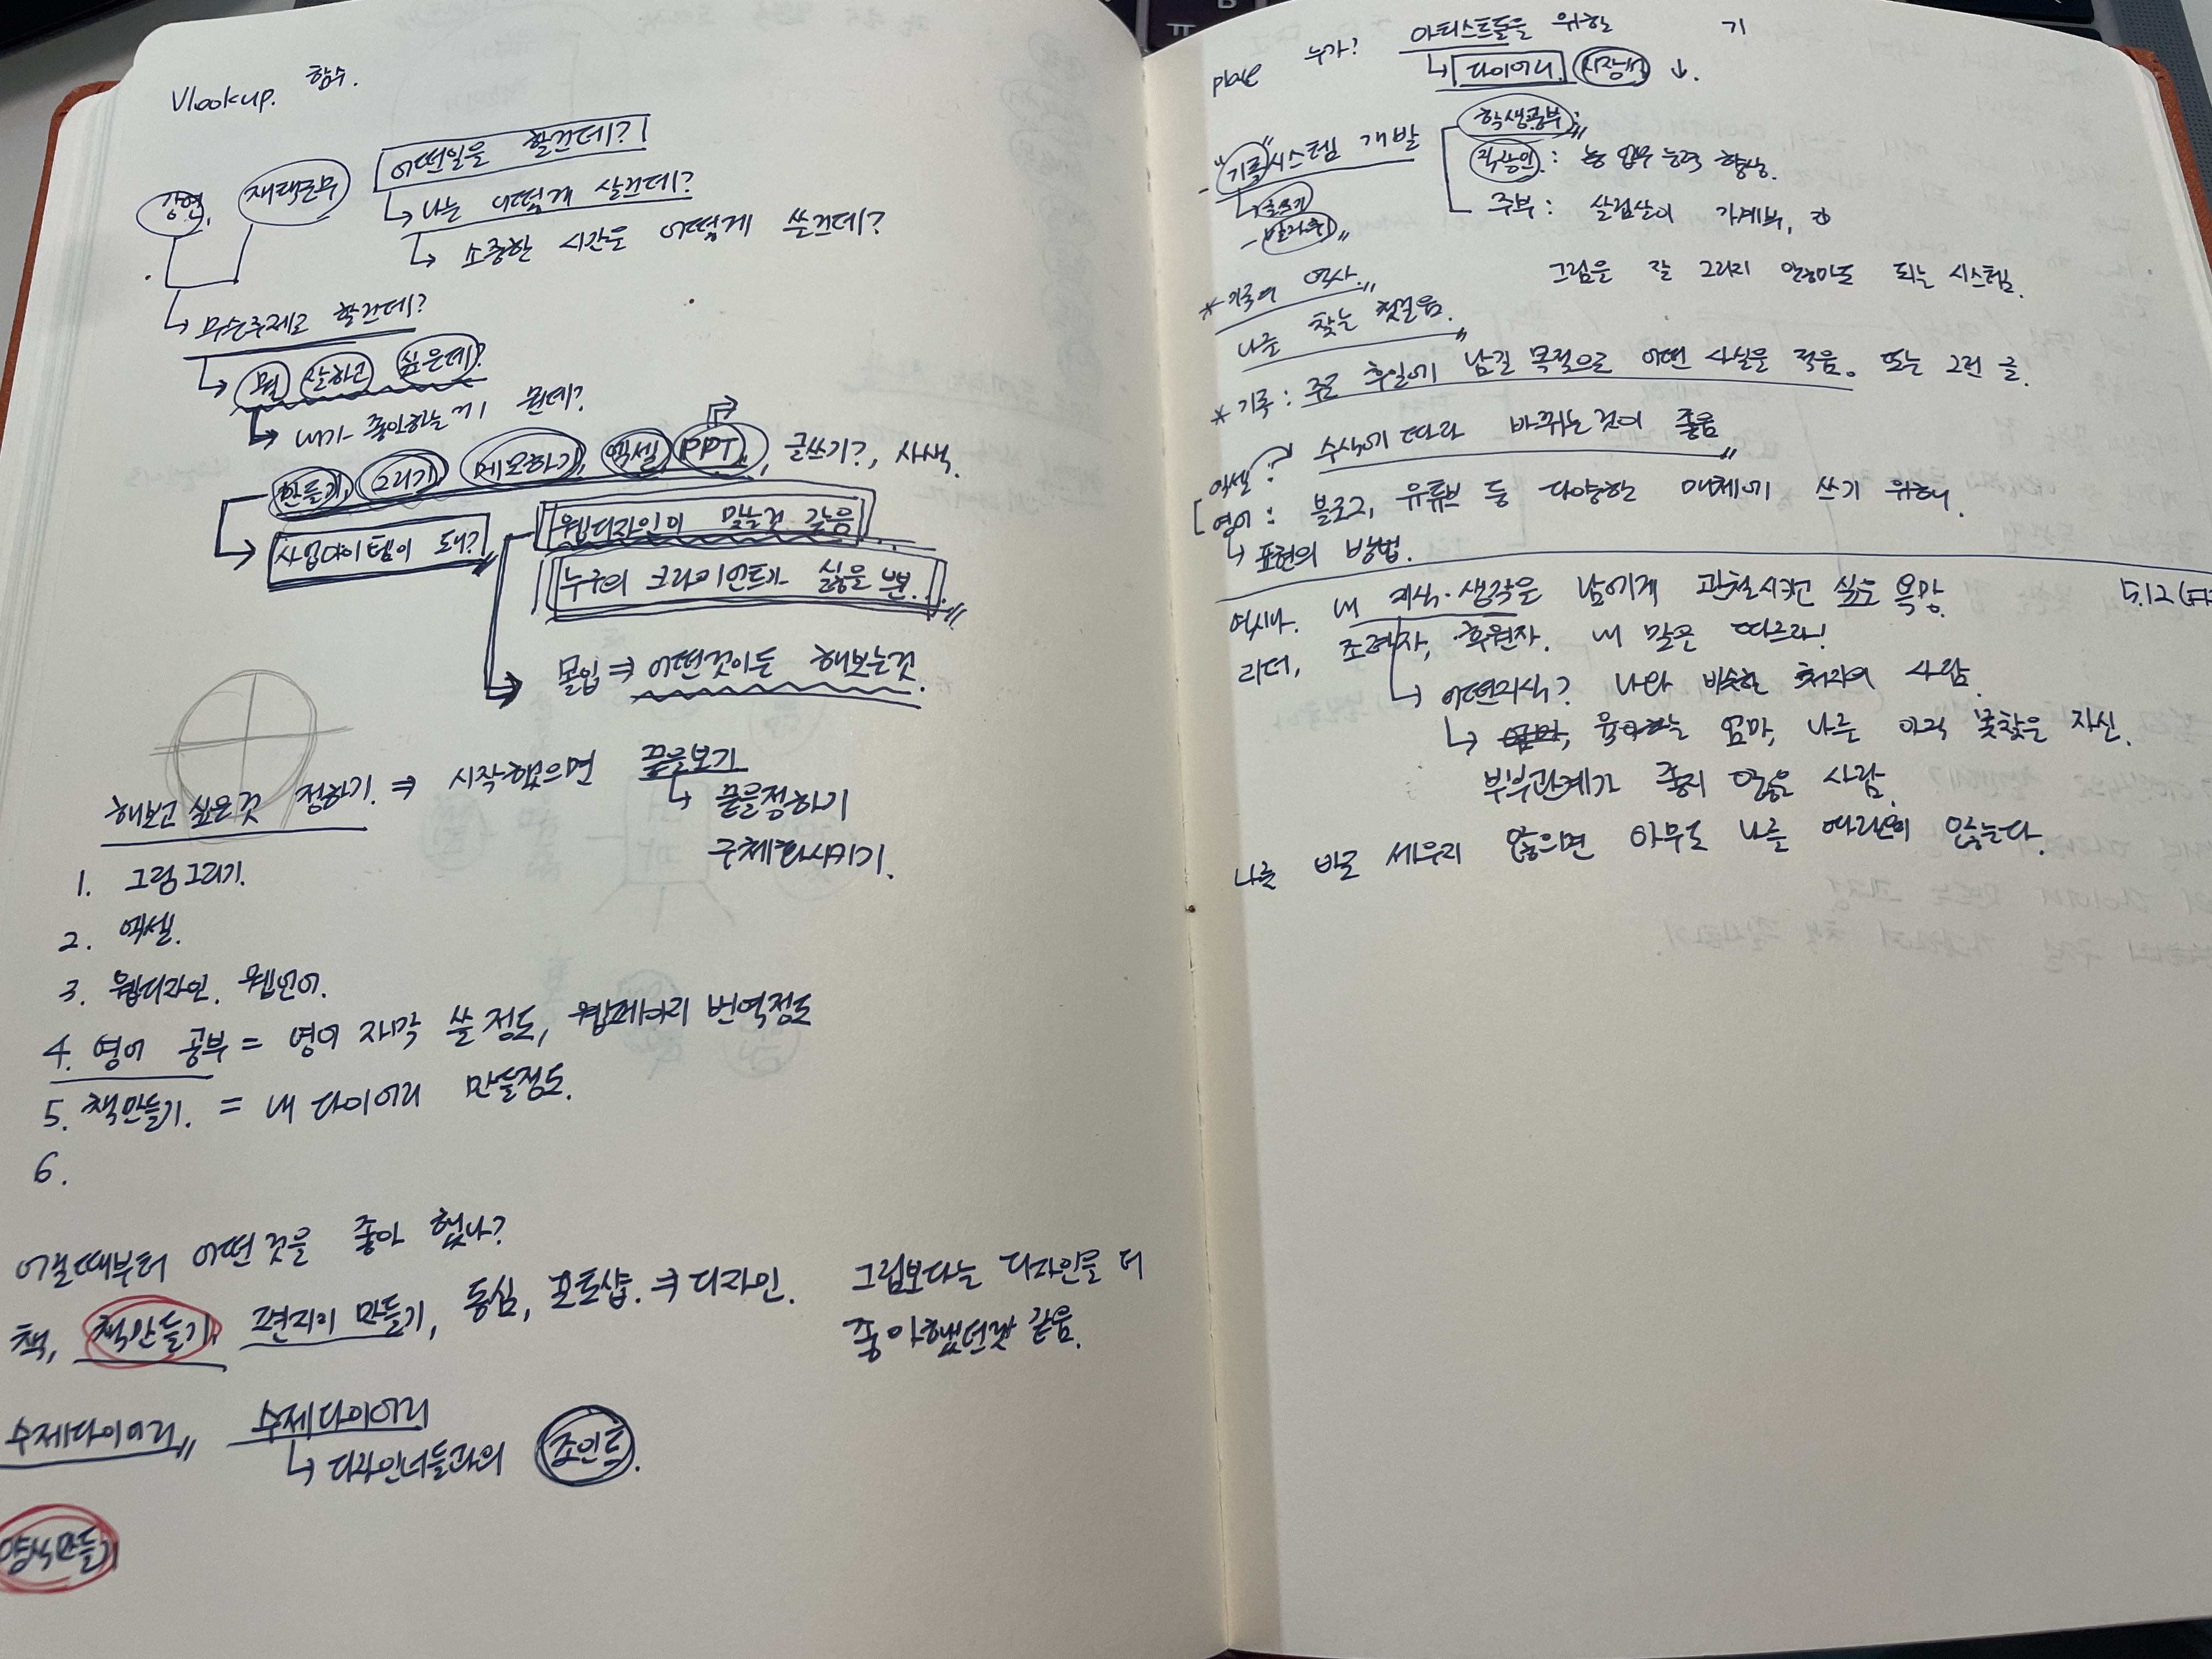 Vlookup. 함수.
어떤일을 할건데?!
강연, 재택근무
나는 어떻게 살건데?
소중한 시간을 어떻게 쓸건데?
무슨주제로 할건데?
뭘 잘하고 싶은데?
내가 좋아하는게 뭔데?
만들기, 그리기, 메모하기, 엑셀, PPT, 글쓰기?, 사색.
사업아이템이 돼?
웹디자인이 맞는것 같음
누구의 크라이언트가 싫을 뿐..
몰입 ⇒ 어떤것이든 해보는것.
해보고 싶은것 정하기. ⇒ 시작했으면 끝을보기
끝을정하기
구체화시키기.
1. 그림그리기.
2. 엑셀.
3. 웹디자인. 웹언어.
4. 영어 공부 = 영어 자막 쓸정도, 웹페이지 번역정도
5. 책만들기. = 내 다이어리 만들정도.
6.
어릴때부터 어떤것을 좋아 했나?
책, 책만들기, 편지지 만들기, 동심, 포토샵. ⇒ 디자인.
그림보다는 디자인을 더
좋아했던것 같음.
수제다이어리 수제다이어리
디자이너들과의 조인트.
양식만들기
place 누가? 아티스트들을 위한 기
다이어리 시장성 ↓.
"기록"시스템 개발
글쓰기
학생공부:
직장인: 업무능력 향상.
주부: 살림살이 가계부,
그림을 잘 그리지 않아도 되는 시스템.
* 기록의 역사.
나를 찾는 첫걸음.
* 기록 : 주로 후일에 남길 목적으로 어떤 사실을 적음. 또는 그런 글.
엑셀? 수식에 따라 바뀌는것이 좋음
영어: 블로그, 유튜브 등 다양한 매체에 쓰기 위해.
표현의 방법.
5.12
역시나. 내 지식·생각을 남에게 관철시키고 싶은 욕망.
리더, 조력자, 후원자. 내 말을 따르라!
어떤지식? 나와 비슷한 처지의 사람.
엄마, 육아하는 엄마, 나를 아직 못찾은 자신.
부부관계가 좋지 않은 사람.
나를 바로 세우지 않으면 아무도 나를 따라오지 않는다.